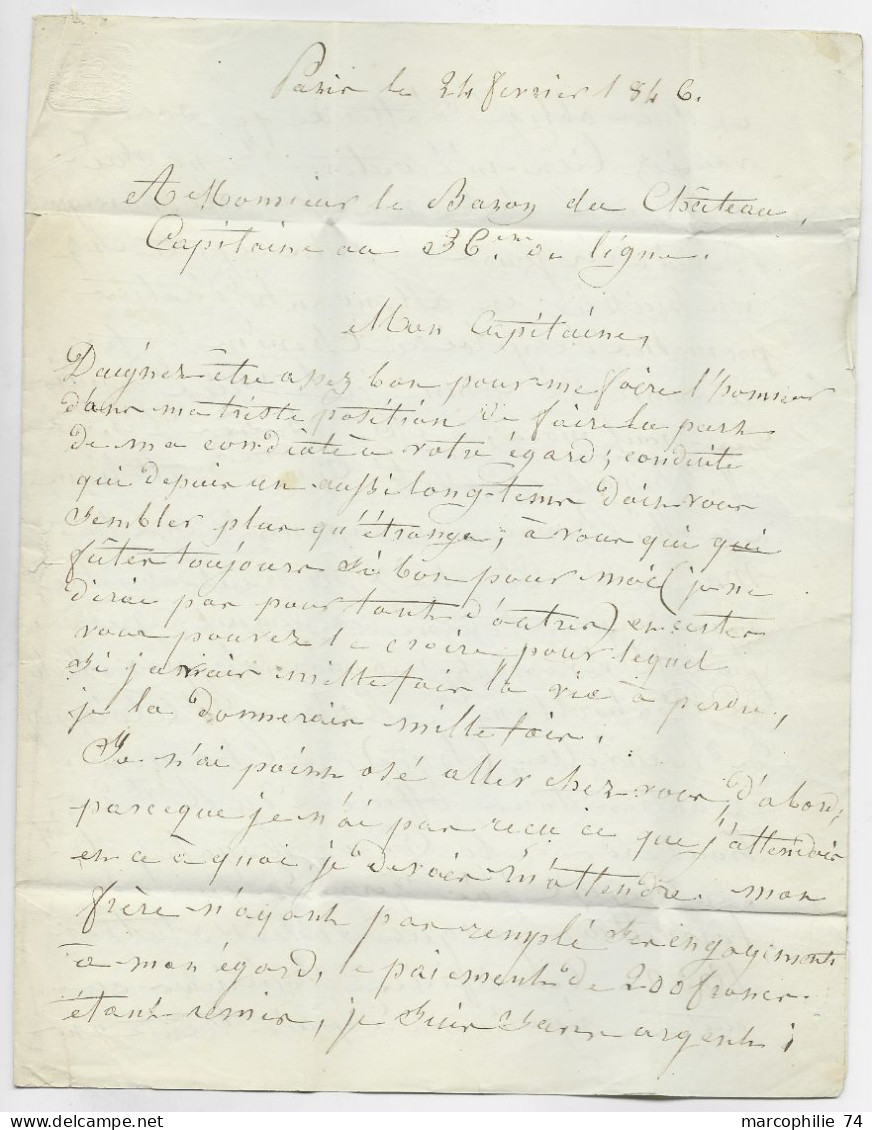 Paris le 24 fevrier 1846.
A Monsieur le Baron du Château,
Capitaine au 36.eme de ligne.
Mon Capitaine,
Daignez être assez bon pour me faire l'honneur
dans ma triste position de faire la part
de ma conduite à votre égard; conduite
qui depuis un aussi long-tems doit vous
sembler plus qu'étrange; à vous qui qui
fûtes toujours si bon pour moi (je ne
dirai pas pour tant d'autres) en
vous pouvez le croire pour lequel
si j'avais mille fois la vie à perdre,
je la donnerais mille fois.
Je n'ai point osé aller chez vous, d'abord,
parceque je n'ai pas reçu ce que j'attendais
en ce à quoi je devais m'attendre. mon
frère n'ayant pas remplé ses engagements
à mon égard, le paiement de 200 francs
étant remis, je suis sans argent;
marcophilie 74